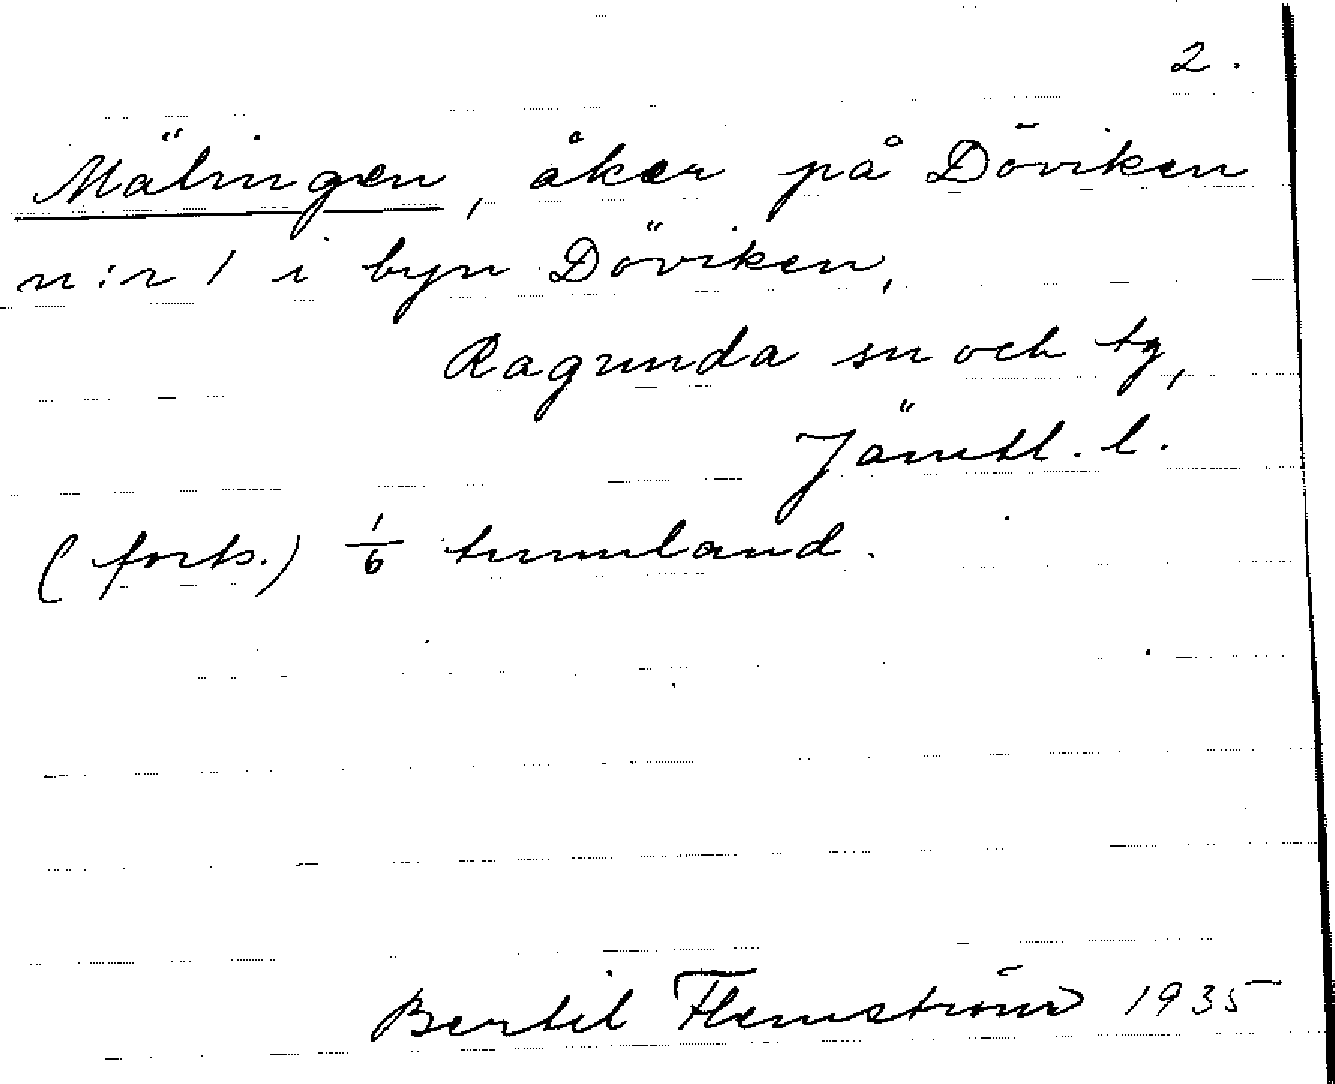 2.
Mälingen, åker på Döviken
n:r 1 i byn Döviken,
Ragunda sn och tg,
Jämtl. l.
(forts.) 1/6 tunnland.
Bertil Flemström 1935